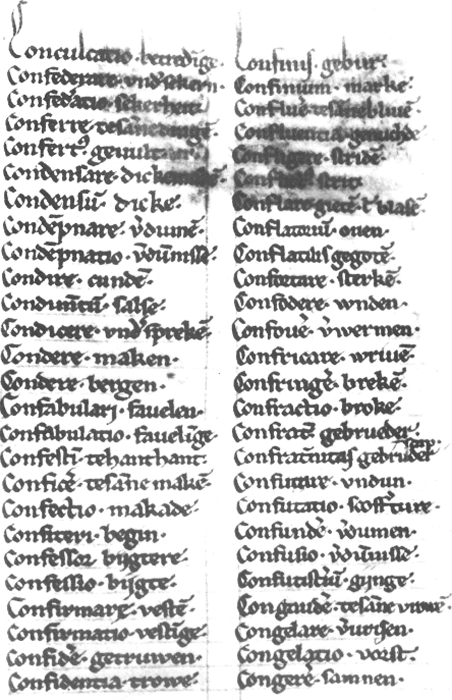 Conculcatio · betredīge ·
Confederare · vnd'sekern ·
Confed'atio · sekerheit ·
Conferre · tesāne
Confert9 · geuult
Condensare · dick
Condensū · dicke ·
Condēpnare · v'dumē ·
Condēpnatio · v'dūnisse ·
Condire · cundē ·
Condimētū · salse ·
Condicere · vnd'sprekē ·
Condere · maken ·
Condere · bergen ·
Confabulari · fauelen ·
Confabulatio · fauelīge ·
Confestī · tehanthant ·
Conficē · tesāne makē ·
Confectio · makade ·
Confiteri · begin ·
Confessor · bijgtere ·
Confessio · bijgte ·
Confirmare · vestē ·
Confirmatio · vestīge ·
Confidē · getruwen ·
Confidentia · trowe ·
Confinis · gebur ·
Confinium · marke ·
Conflue
Confluentia
Confligere · stridē ·
strit ·
Conflare · blasē ·
Conflatoriū · ouen ·
Conflatilis gegotē ·
Confortare · sterkē ·
Confodere · wnden ·
Confouē · v'wermen ·
Confricare · wriuē ·
Confringē · brekē ·
Confractio · broke ·
Confrat' gebrueder ·
Confrat'nitas gebruder
Confutare · vndun ·
Confutatio ·
Confundē · v'dumen ·
Confusio · v'dūnisse ·
Confutistiū · gijnge ·
Congaudē · tesāne vrowē ·
Congelare · v'urisen ·
Congelatio · vorst ·
Congerē · samnen ·